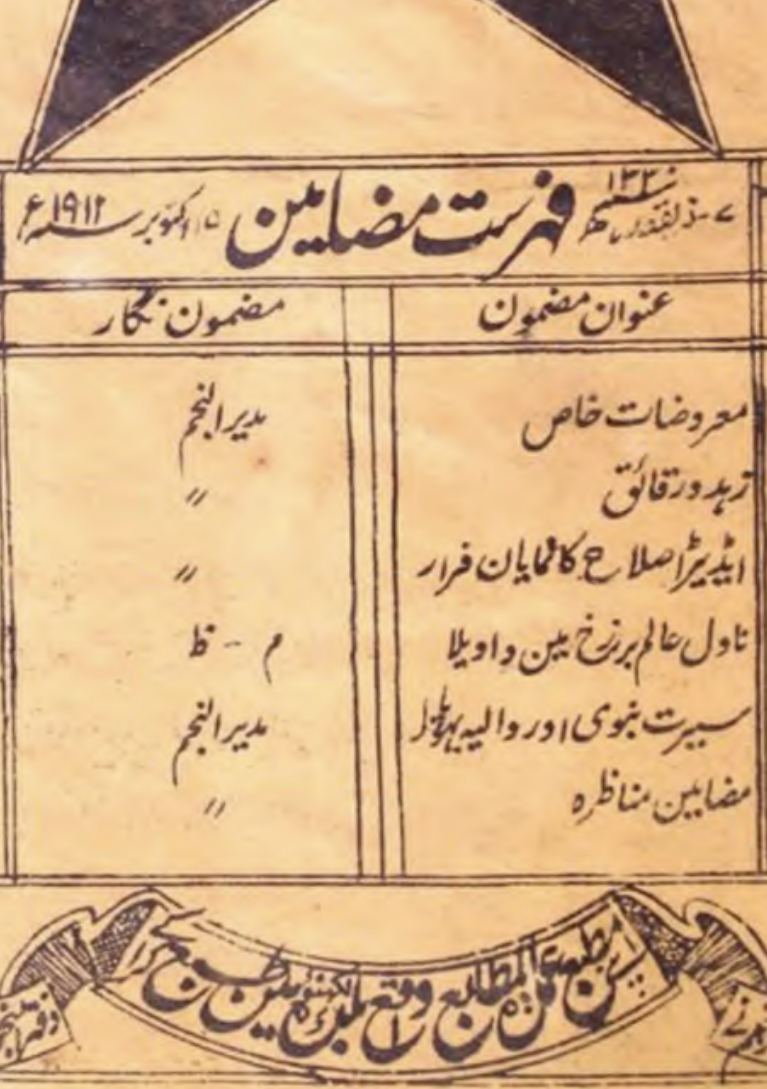 ۷- ذیقعدہ ۱۳۳۰ھ فہرست مضامین ۱۵ اکتوبر سنہ ۱۹۱۲ء
عنوان مضمون مضمون نگار
معروضات خاص مدیر النجم
زہد و رقائق 〃
ایڈیٹر اصلاح کا نمایان فرار 〃
ناول عالم برزخ مین واویلا م - ظ
سیرت نبوی اور والیہ بھوپال مدیر النجم
مضامین مناظرہ 〃
مطبع عمدۃ المطابع واقع لکھنؤ مین طبع کرا